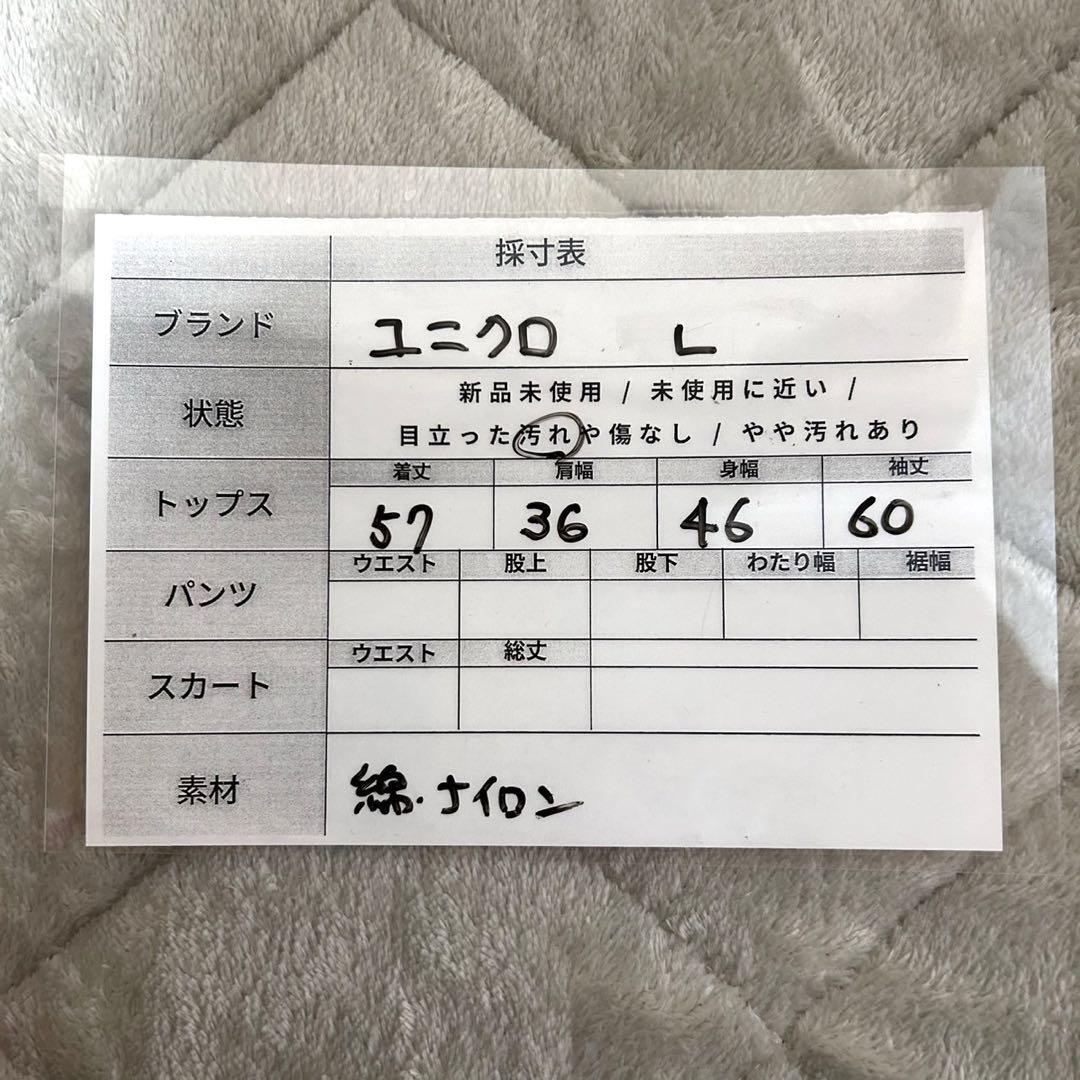 採寸表
ブランド ユニクロ L
状態 新品未使用 / 未使用に近い /
目立った汚れや傷なし / やや汚れあり
トップス 着丈 肩幅 身幅 袖丈
57 36 46 60
パンツ ウエスト 股上 股下 わたり幅 裾幅
スカート ウエスト 総丈
素材 綿・ナイロン